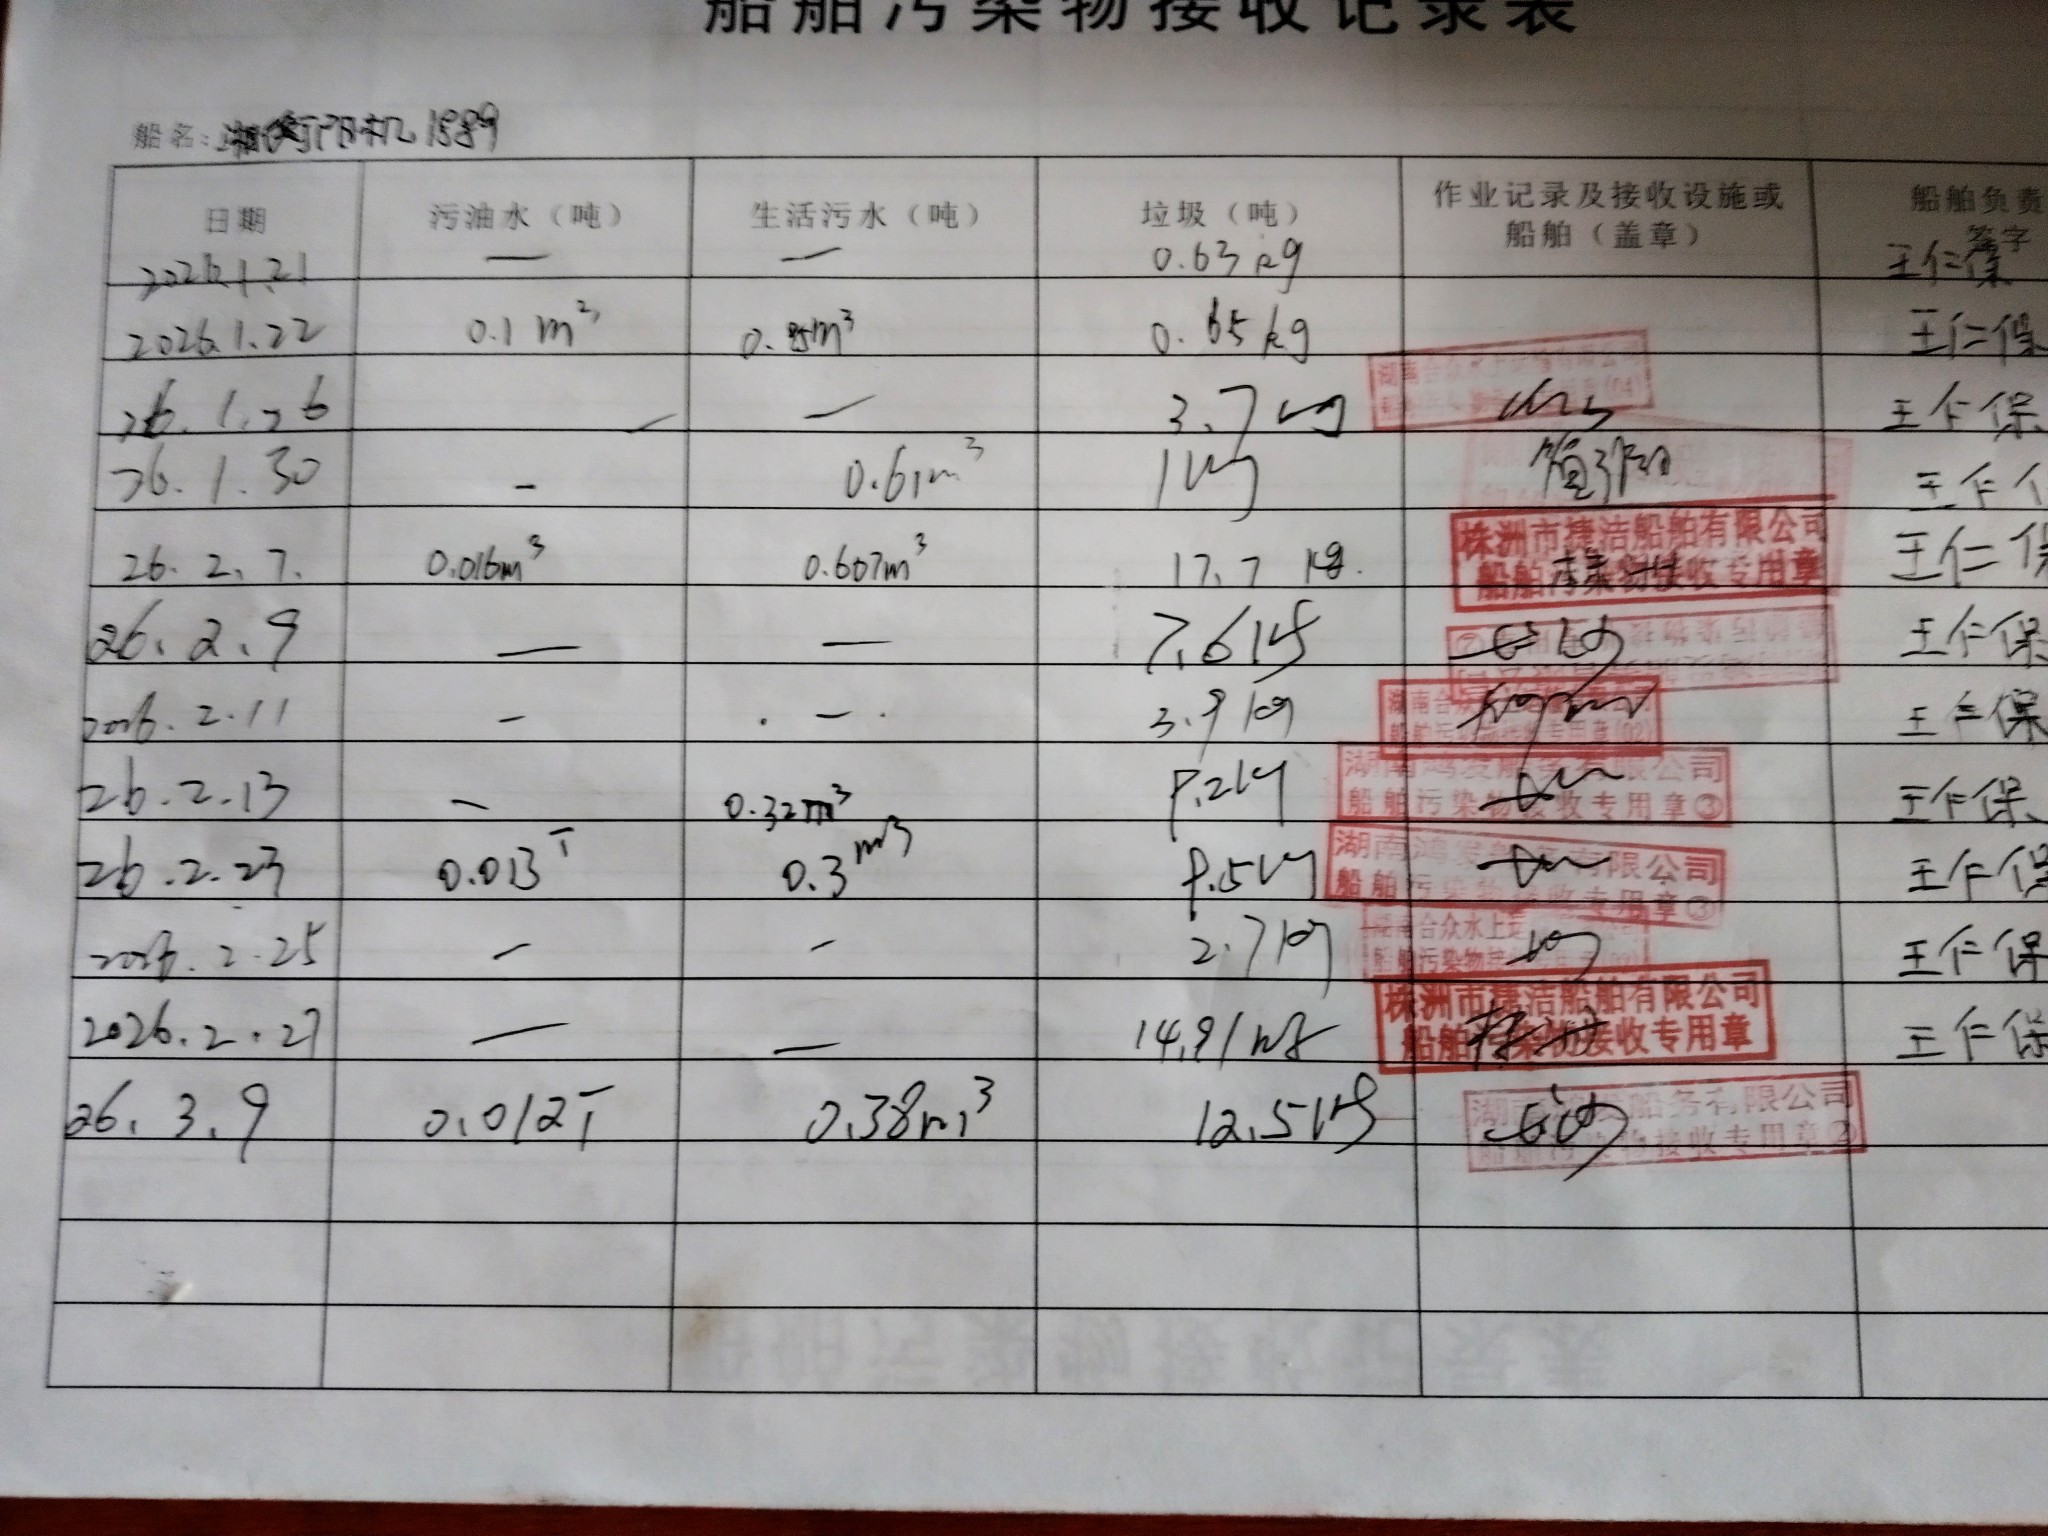 船舶污染物接收记录表
船名: 湘衡阳机1889
日期 污油水（吨） 生活污水（吨） 垃圾（吨） 作业记录及接收设施或船舶（盖章） 船舶负责 签字
2026.1.21 — — 0.63 kg 王仁保
2026.1.22 0.1 m³ 0.85m³ 0.65 kg 王仁保
26.1.26 — — 3.7 kg 王仁保
26.1.30 - 0.61m³ 1kg 王仁
26.2.7. 0.016m³ 0.607m³ 17.7 kg. 株洲市捷洁船舶有限公司 船舶污染物接收专用章 王仁保
26.2.9 — — 7.6kg 王仁保
2026.2.11 - - 3.9kg 王仁保
26.2.13 - 0.32m³ 8.2kg 湖南鸿发船务有限公司 船舶污染物接收专用章③ 王仁保
26.2.23 0.013T 0.3m3 8.5kg 湖南鸿发船务有限公司 船舶污染物接收专用章③ 王仁保
2026.2.25 - - 2.7kg 王仁保
2026.2.27 — — 14.91kg 株洲市捷洁船舶有限公司 船舶污染物接收专用章 王仁保
26.3.9 0.012T 0.38m³ 12.5kg 船务有限公司 接收专用章②